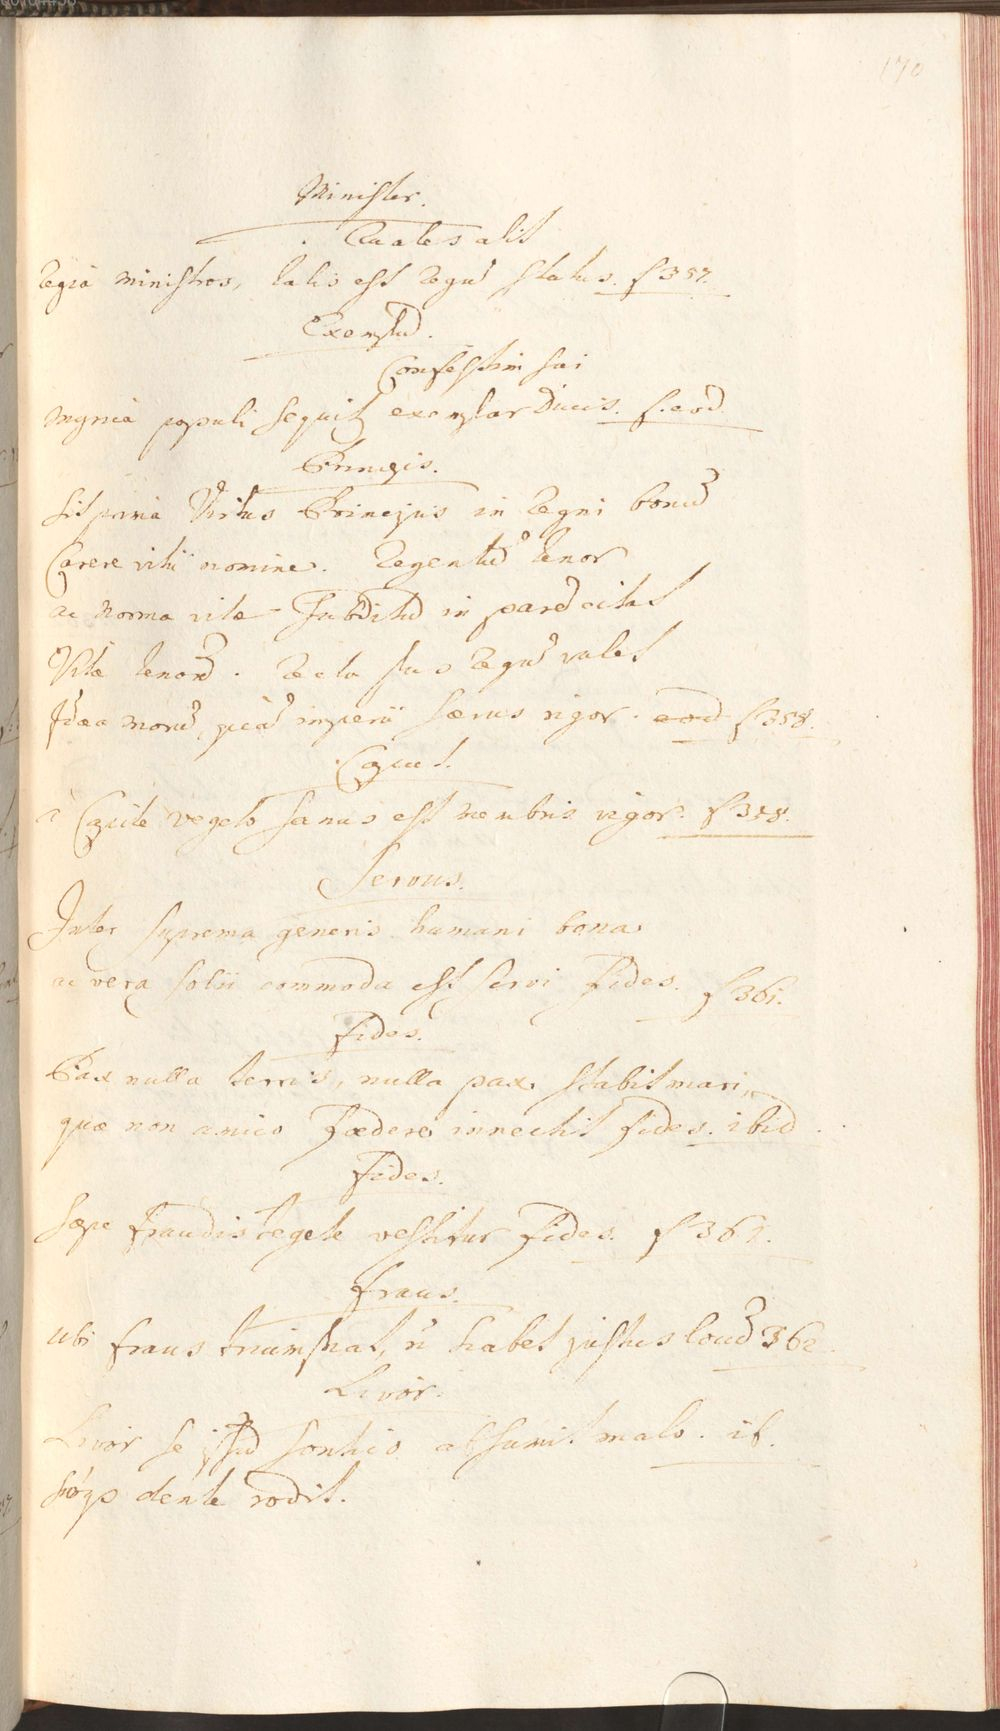 170
Minister.
Quales alit
Regia ministros, talis est regnū status. f 357.
Exemplū.
Confestim sui
ingenia populi sequitʒ exemplar Ducis. f. eod.
Principis.
Sit prima Virtus Principis in Regni bonū
Carere vitii nomine. Regentū tenor
ac norma vitæ Subditū in parē citat
Vitæ tenorē. Recta plus regnū valet
Idæa morū, quā imperii sævus rigor. eod f 358.
Caput.
è Capite vegeto sanus est membris vigor. f 358.
Servus.
Inter suprema generis humani bona
ac vera solii commoda est servi fides. f 361.
Fides.
Pax nulla terris, nulla pax stabit mari,
quæ non amico fædere innectit fides. ibid
Fides.
Sæpe fraudis tegete vestitur fides. f 361.
Fraus.
Ubi fraus triumphat, ñ habet justus locū 362.
Livor.
Livor se ipsū sontico absumit malo. ib.
dente rodit.